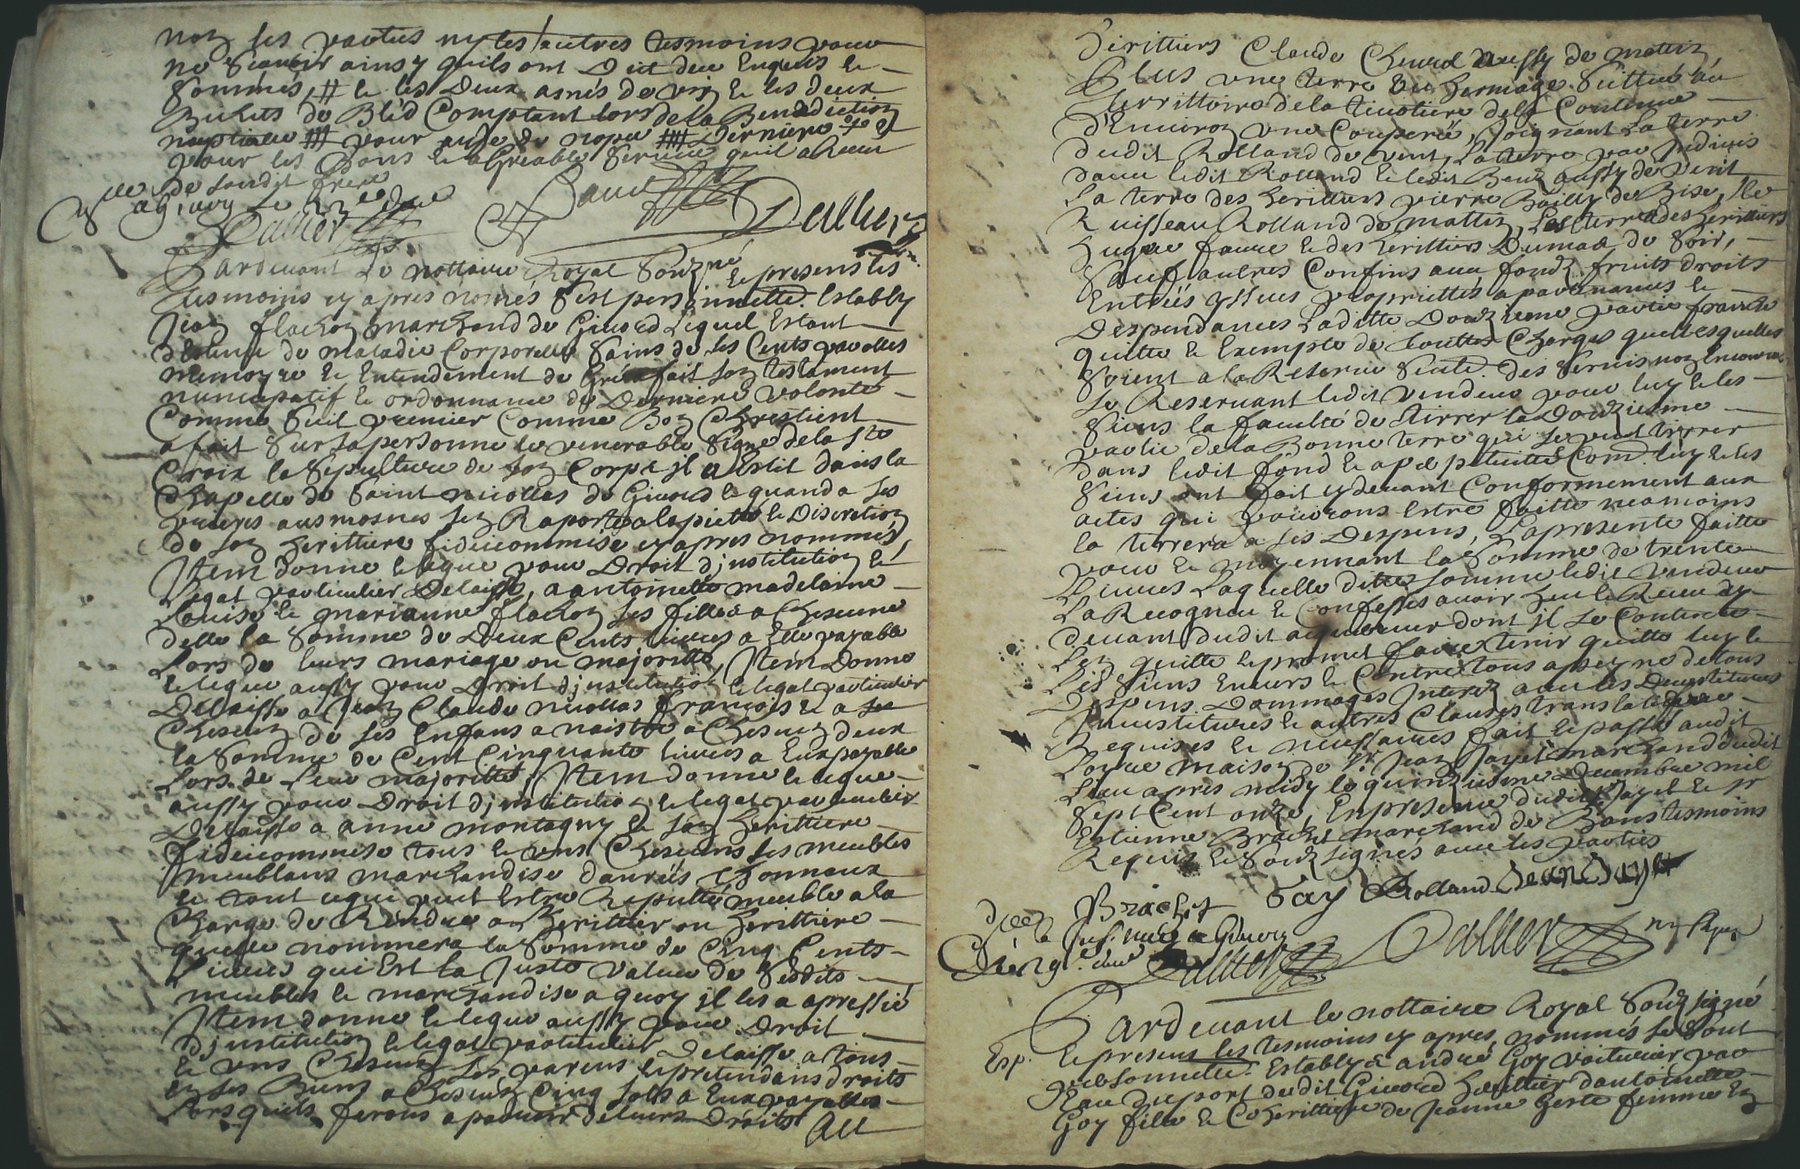 non les parties ny les autres tesmoins pour
ne scavoir ainsy quils ont dit de ce enquis et
sommés, # et les deux asnés de vin et les deux
Bichets de Bléd comptant lors de la Benediction
nuptialle ## pour aise de nopce ### derniere
pour les bons et agreable service quil a Receu
de sondit frere
agivors le 22e
Dalier
Dalier
Pardevant le nottaire Royal soubzné et presens les
tesmoins cy apres només sest personnellet. Estably
Jean flachon marchand de Givord lequel Estant
détenu de maladie corporelle sains de ses cents parolles
memoyre et Entendement de gré a fait son testament
nuncupatif et ordonnance de derniere volonté
Comme suit premier comme Bon Chrestient
a fait sur sa personne le venerable signe de la ste
Croix la sepulture de son corps il a eslit dans la
Chapelle de saint nicollas de Givord et quand a ses
prieres aumosnes sen Raporte a la pietté et discretion
de son herittiere fideicommise cy apres nommée,
Item donne et legue pour droit d'institution et
legat particulier delaisse, a antoinette madelaine
Louise et marianne flachon ses filles a chescune
delle la somme de deux cents livres a elle payable
lors de leurs mariage ou majoritté, Item donne
et legue aussy pour droit d'institution et legat particulier
delaisse a Jean Claude nicollas françois et a
chescun de ses Enfans a naistre a chescun deux
la somme de Cent Cinquante livres a Eux payable
lors de leur majoritté, Item donne et legue
aussy pour droit d'institution et legat particulier
delaisse a anne montagny et son herittiere
fideicommise tous et uns chescuns ses meubles
meublans marchandise danrées thonneaux
et tout ce que peut estre Reputté meuble a la
charge de Rendre a herittier ou herittiere
quelle nommera la somme de Cinq Cents
livres qui Est la juste valeur de sesdits
meubles et marchandise a quoy il les a apressié
Item donne et legue aussy pour droit
d'institution et legat particulier delaisse a tous
et uns chescun ses parens et pretendans droits
en ses Biens a chescun Cinq sols a Eux payables
lors quils feront aparoir de leurs droits au
herittiers Claude aussy de mattin
Plus une terre et hermage scittué au
territtoire de la tivotiere de la Contenue
d'Environ une Couperée, joignant la terre
dudit Rolland de vent, la terre par indivis
dentre ledit Rolland et ledit aussy de vent
la terre des herittiers pierre Bailly de Bise, le
Ruisseau Rolland de mattin, les terres des herittiers
hugue faure et des herittiers Dumas de soir,
sauf autres Confins avec fondz fruits droits
Entrées yssues proprietés apartenances et
despendances laditte douzieme partie franche
quitte et Exempte de touttes Charges quellesquelles
soient a la Reserve
se Reservant ledit vendeur pour luy et les
siens la faculté de tirrer la douzieme
partie de la Bonne terre qui se peut tirrer
dans ledit fond et Comme luy et les
siens ont fait cy devant Conformement aux
actes qui pouvoient Estre faitte neamoins
la terrera a ses despens, la presente faitte
pour et moyennant la somme de trente
livres laquelle ditte somme ledit vendeur
la Recognu et Confessé avoir heu et Receu cy
devant dudit aquereur dont il se Contente
len quitte et promet faire tenir quitte luy et
les siens Envers et Contre tous a peyne de tous
despens dommages Interez avec les devestitures
Investitures et autres Clauses translatives
Requises et necessaires fait et passé audit
Loyre maison de sr Jean Jayet marchand dudit
lieu apres midy le quinzieme decembre mil
sept Cent onze, En presence dudit Jayet et sr
Estienne Brachet marchand de Bans tesmoins
Requis et soubz signés avec les parties
Brachet Say Rolland Jean Jayet
Dalier
Dalier
Pardevant le nottaire Royal soubz signé
Exp. et presens les tesmoins cy apres nommés se sont
personnellet. Establys andré Goy voiturier par
Eau du port dudit Givord herittier dantoinette
Goy fille et Coherittiere de Jeanne femme En